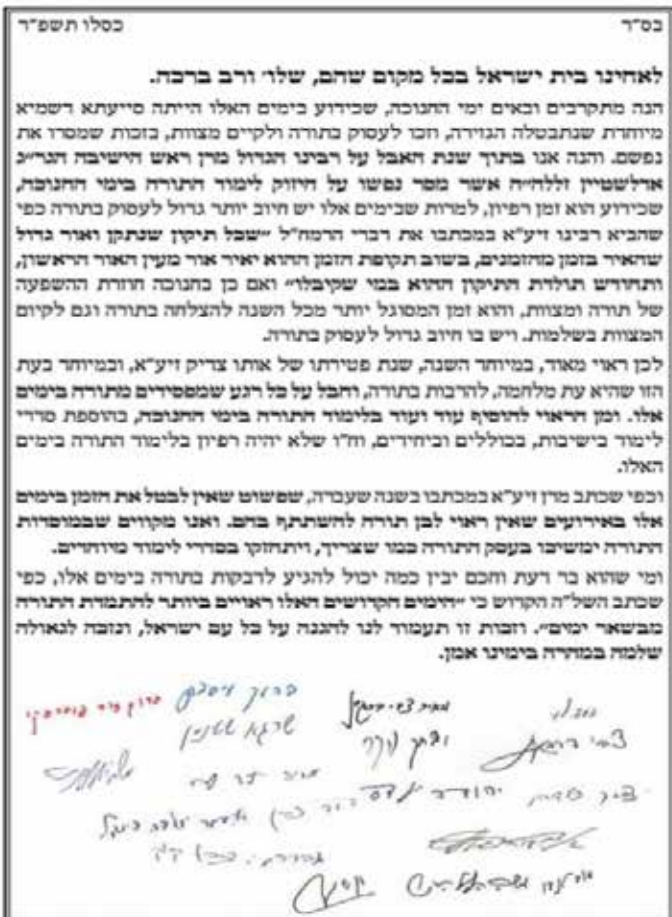 בס״ד כסלו תשפ״ד
לאחינו בית ישראל בכל מקום שהם, שלו׳ ורב ברכה.
הנה מתקרבים ובאים ימי החנוכה, שכידוע בימים האלו הייתה סייעתא דשמיא
מיוחדת שנתבטלה הגזירה, וזכו לעסוק בתורה ולקיים מצוות, בזכות שמסרו את
נפשם. והנה אנו בתוך שנת האבל על רבינו הגדול מרן ראש הישיבה הגר״ג
אדלשטיין זללה״ה אשר מסר נפשו על חיזוק לימוד התורה בימי החנוכה,
שכידוע הוא זמן רפיון, למרות שבימים אלו יש חיוב יותר גדול לעסוק בתורה כפי
שהביא רבינו זיע״א במכתבו את דברי הרמח״ל ״שכל תיקון שנתקן ואור גדול
שהאיר בזמן מהזמנים, בשוב תקופת הזמן ההוא יאיר אור מעין האור הראשון,
ותחודש תולדת התיקון ההוא במי שקיבלו״ ואם כן בחנוכה חוזרת ההשפעה
של תורה ומצוות, והוא זמן המסוגל יותר מכל השנה להצלחה בתורה וגם לקיום
המצוות בשלמות. ויש בו חיוב גדול לעסוק בתורה.
לכן ראוי מאוד, במיוחד השנה, שנת פטירתו של אותו צדיק זיע״א, ובמיוחד בעת
הזו שהיא עת מלחמה, להרבות בתורה, וחבל על כל רגע שמפסידים מתורה בימים
אלו. ומן הראוי להוסיף עוד ועוד בלימוד התורה בימי החנוכה, בהוספת סדרי
לימוד בישיבות, בכוללים וביחידים, וח״ו שלא יהיה רפיון בלימוד התורה בימים
האלו.
וכפי שכתב מרן זיע״א במכתבו בשנה שעברה, שפשוט שאין לבטל את הזמן בימים
אלו באירועים שאין ראוי לבן תורה להשתתף בהם. ואנו מקווים שבמוסדות
התורה ימשיכו בעסק התורה כמו שצריך, ויתחזקו בסדרי לימוד מיוחדים.
ומי שהוא בר דעת וחכם יבין כמה יכול להגיע לדבקות בתורה בימים אלו, כפי
שכתב השל״ה הקדוש כי ״הימים הקדושים האלו ראויים ביותר להתמדת התורה
מבשאר ימים״. וזכות זו תעמוד לנו להגנה על כל עם ישראל, ונזכה לגאולה
שלמה במהרה בימינו אמן.
ברוך
שרגא שטינמן
יהודה